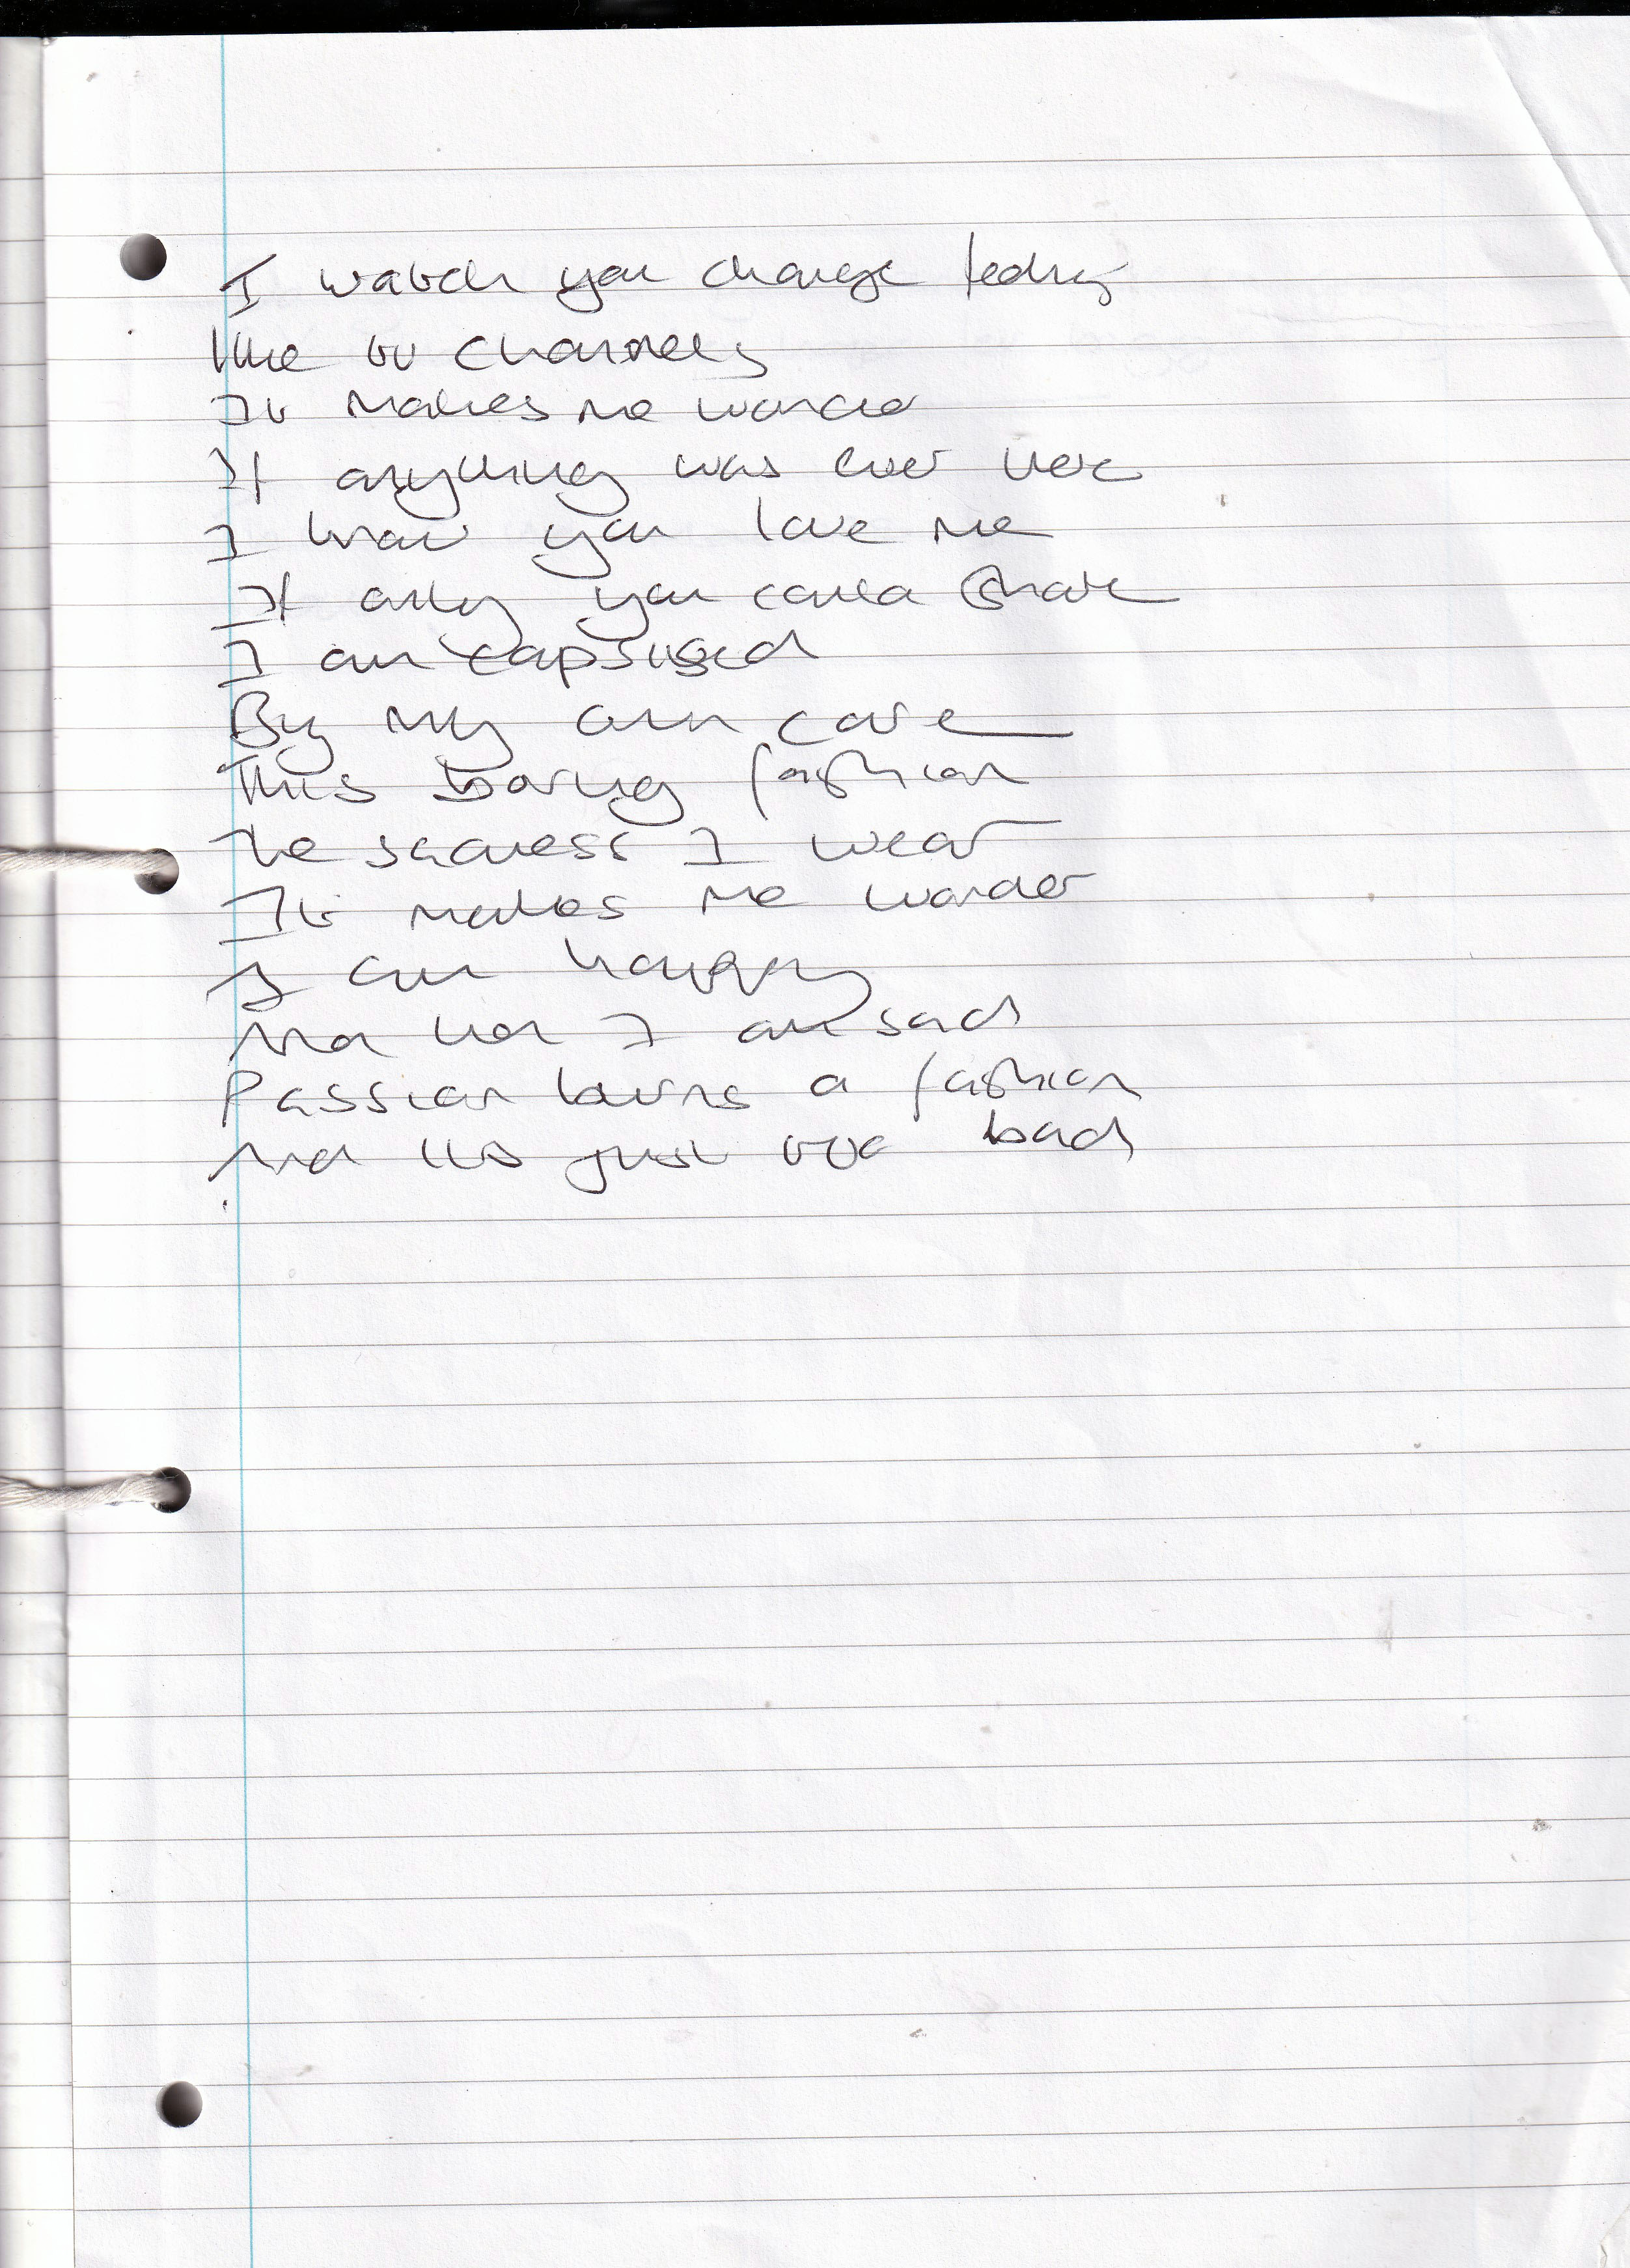 I watch you change feelings
like tv channels
It makes me wonder
If anything was ever there
I know you love me
If only you could share
I am capsized
By my own care
This boring fashion
The sadness I wear
It makes me wonder
I am happy
And then I am sad
Passion burns a fashion
And its just too bad